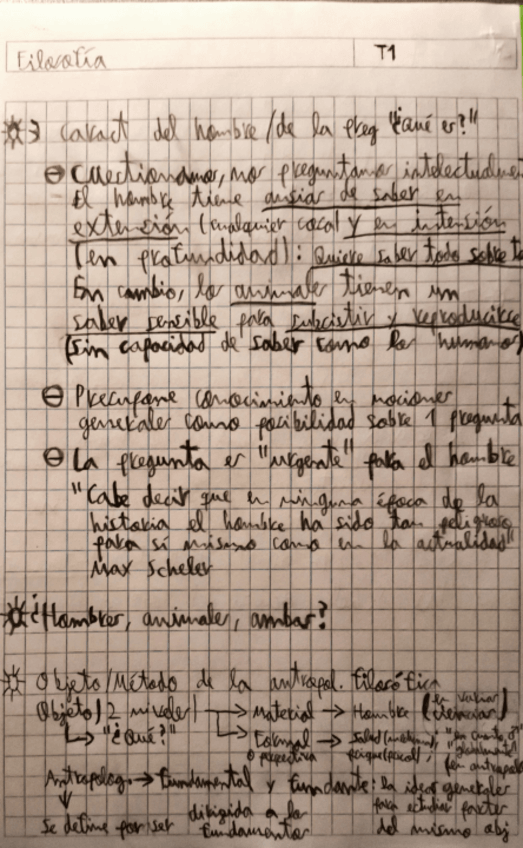 Filosofía T1
3 caract del hombre/de la preg "¿qué es?"
Cuestionamos, nos preguntamos intelectualmen
El hombre tiene ansias de saber en
extensión (cualquier cosa) y en intensión
(en profundidad): quiere saber todo sobre t
En cambio, los animales tienen un
saber sensible para subsistir y reproducirse
(sin capacidad de saber como los humanos)
Presupone conocimiento en nociones
generales como posibilidad sobre 1 pregunta
La pregunta es "urgente" para el hombre
"Cabe decir que en ninguna época de la
historia el hombre ha sido tan peligroso
para sí mismo como en la actualidad"
Max Scheler
¿Hombres, animales, ambas?
Objeto/Método de la antropol. filosófica
Objeto) 2 niveles → Material → Hombre (en varias ciencias)
↳ "¿Qué?" → Formal → 
o perspectiva
Antropolog. → fundamental y fundante: la ideas generales
↓ para estudiar partes
se define por ser dirigida a los fundamentos del mismo obj